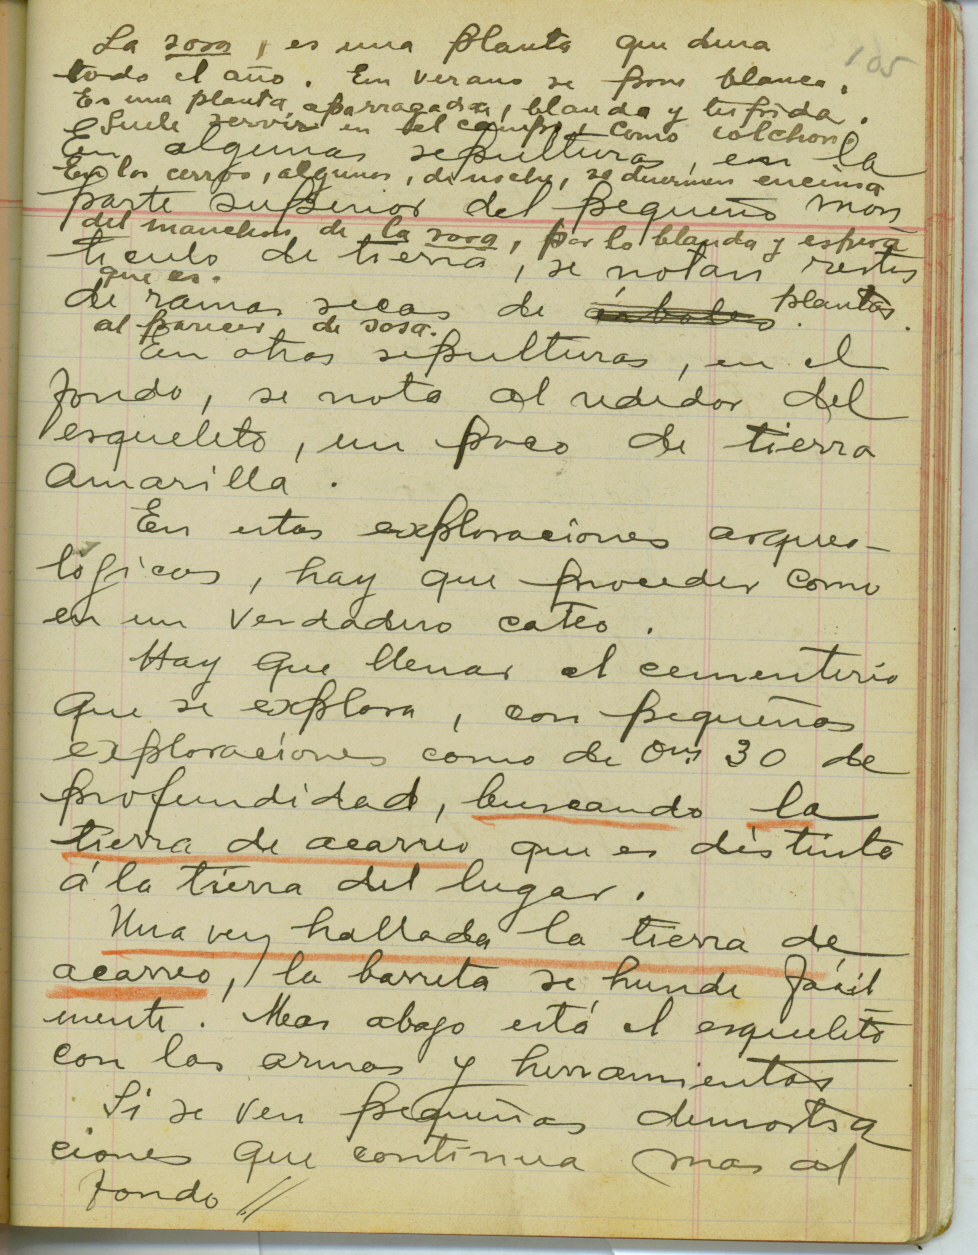 105
La sosa, es una planta que dura
todo el año. En verano se pone blanca.
Es una planta aparragada, blanda y tupida.
Suele servir en el campo, como colchon.
En algunas sepulturas, en la
En los cerros, algunos, de noche, se duermen encima
parte superior del pequeño mon
del manchon de la sosa, por lo blanda y espesa
tículo de tierra, se notan restos
que es.
de ramas secas de árboles plantas.
al parecer de sosa.
En otras sepulturas, en el
fondo, se nota al rededor del
esqueleto, un poco de tierra
amarilla.
En estas exploraciones arqueo-
lógicas, hay que proceder como
en un verdadero cateo.
Hay que llenar el cementerio
que se explora, con pequeñas
exploraciones como de 0m 30 de
profundidad, buscando la
tierra de acarreo que es distinta
á la tierra del lugar.
Una vez hallada la tierra de
acarreo, la barreta se hunde fácil
mente. Mas abajo está el esqueleto
con las armas y herramientas
Si se ven pequeñas demostra
ciones que continua mas al
fondo //